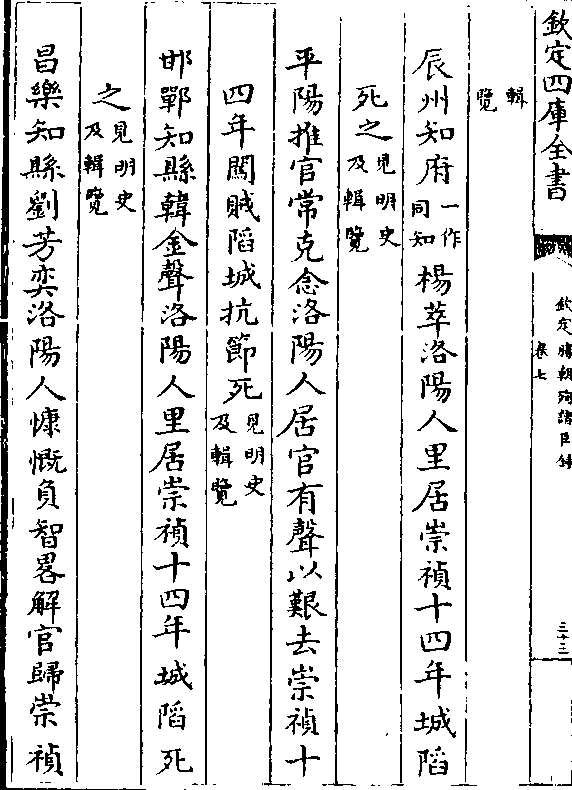 欽定四庫全書
欽定勝朝殉節諸臣錄
卷七
三十三
輯
覽
辰州知府一作同知楊萃洛陽人里居崇禎十四年城䧟
死之見明史及輯覽
平陽推官常克念洛陽人居官有聲以艱去崇禎十
四年闖賊䧟城抗節死見明史及輯覽
邯鄲知縣韓金聲洛陽人里居崇禎十四年城䧟死
之見明史及輯覽
昌樂知縣劉芳奕洛陽人慷慨負智畧解官歸崇禎